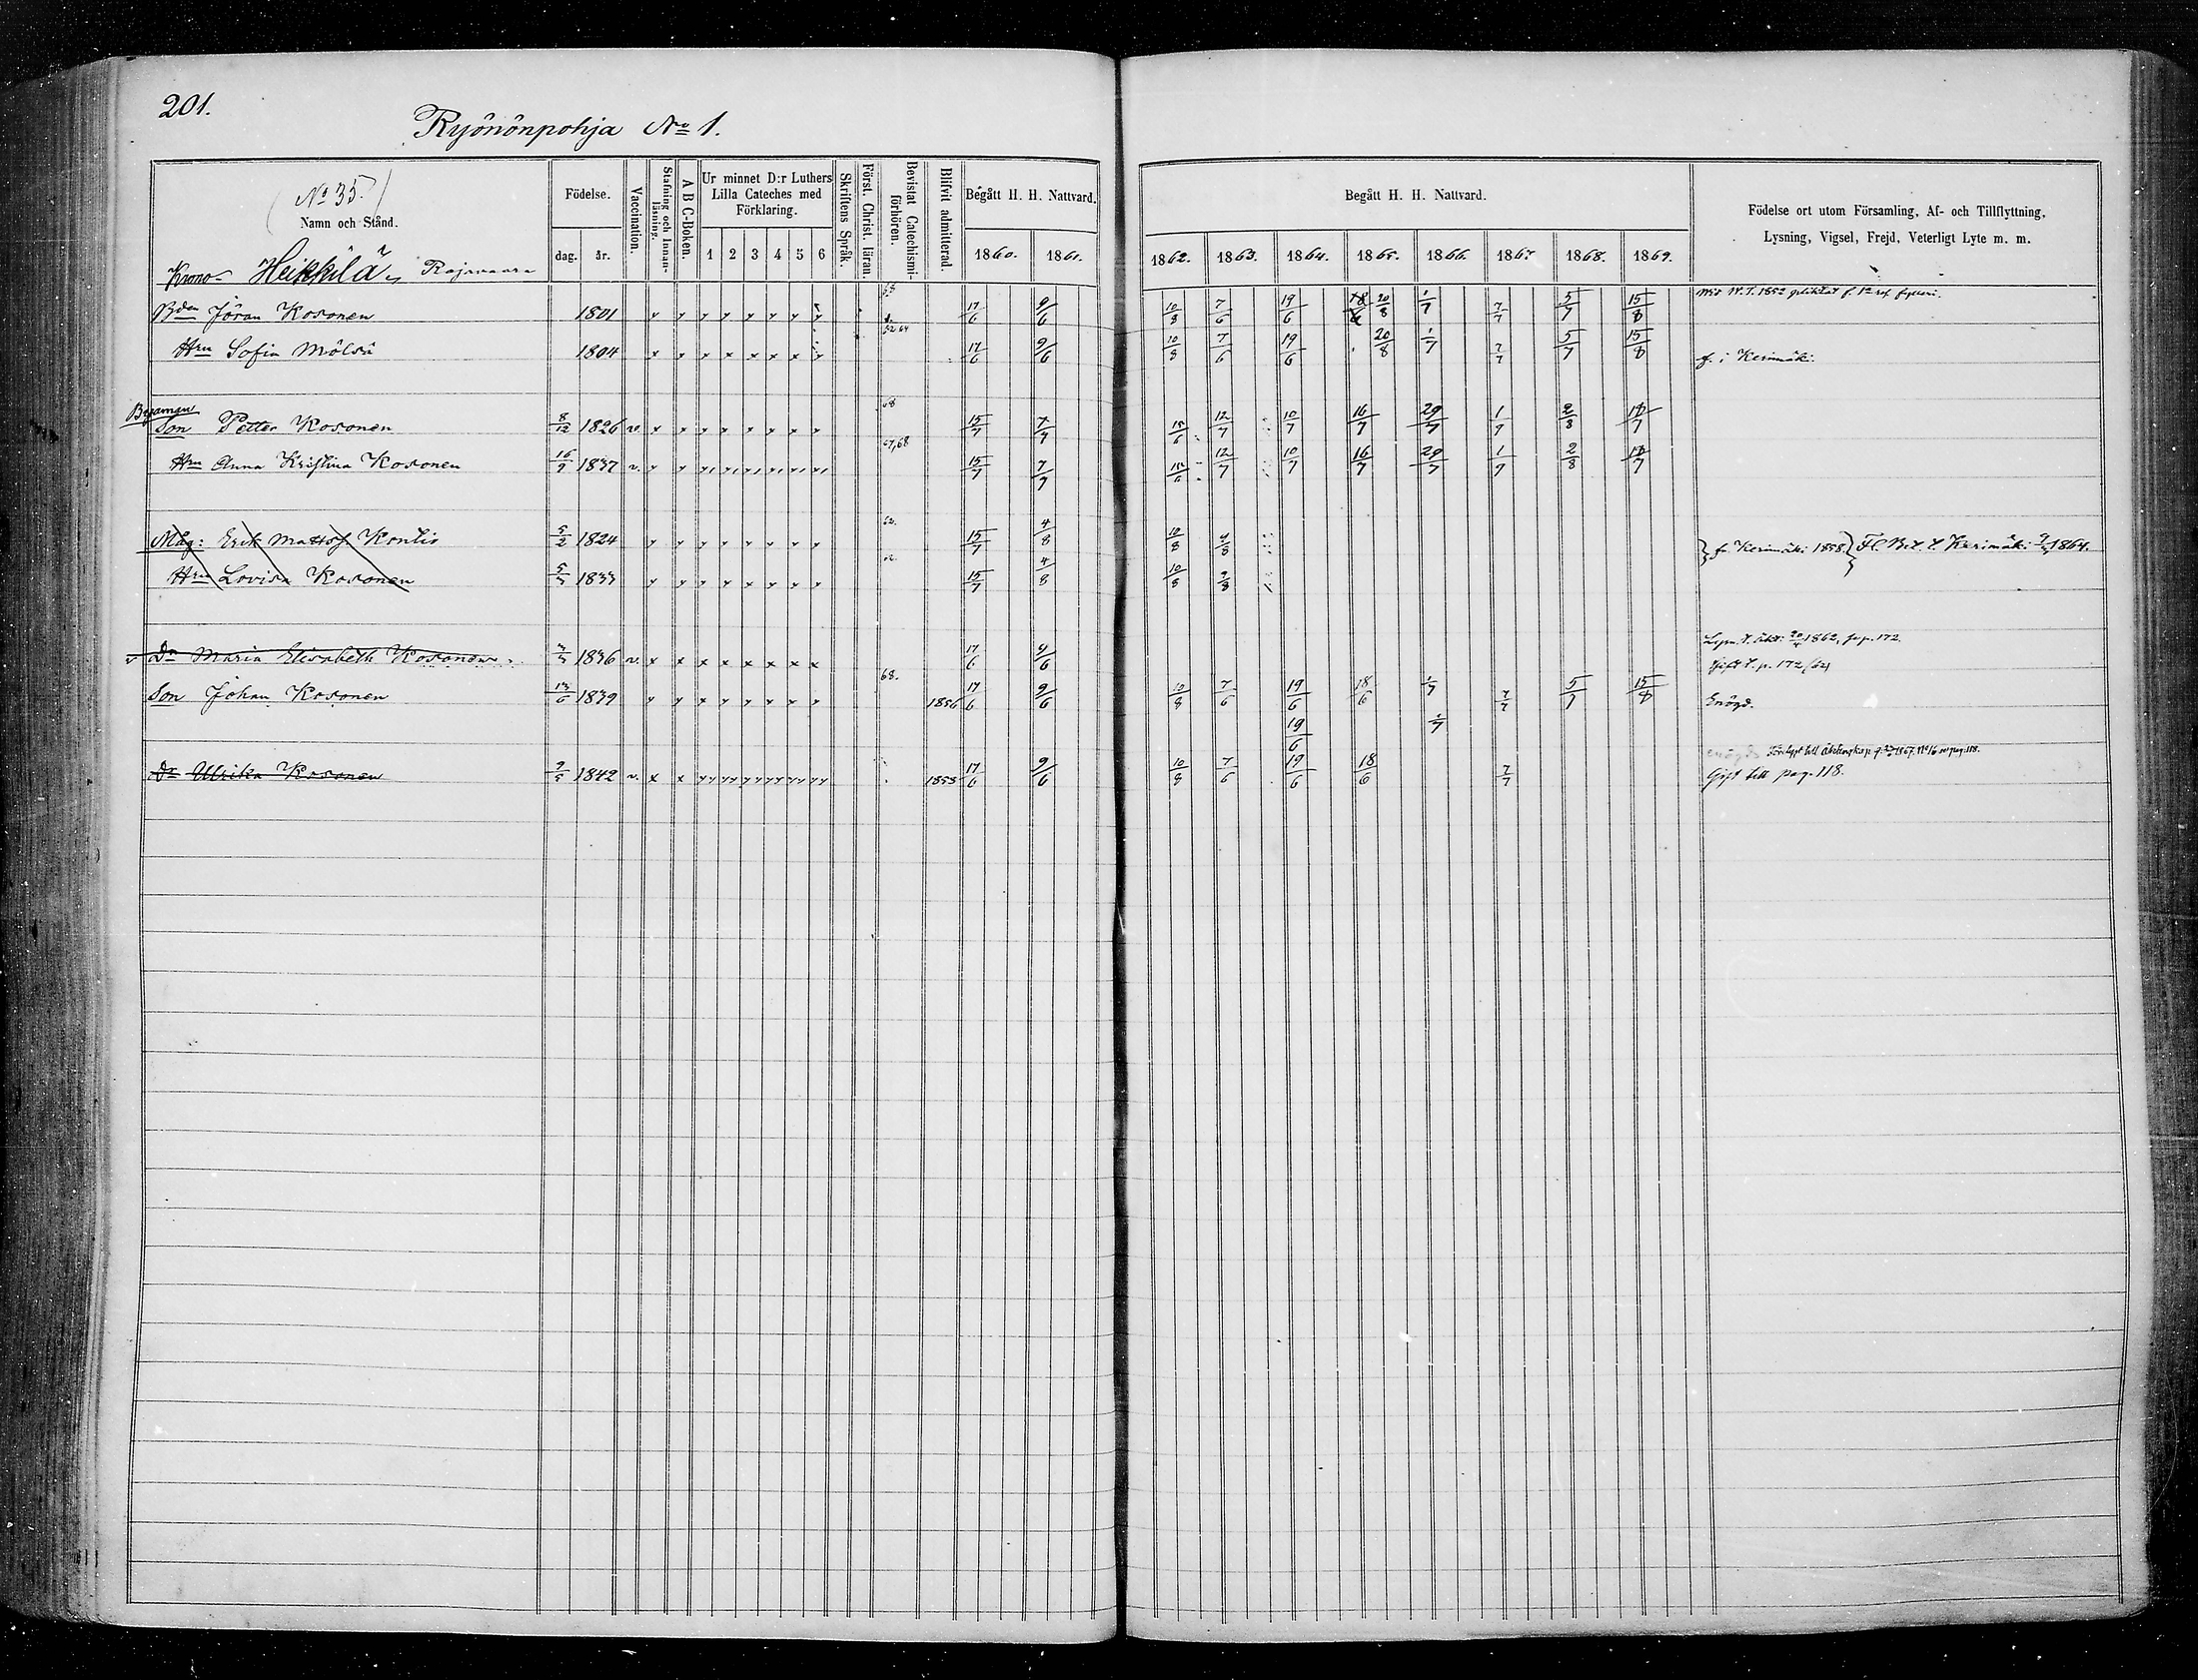 201.
Ryönönpohja No 1.
(No 35.)
Namn och Stånd.
Födelse.
dag. år.
Vaccination.
Stafning och Innanläsning.
A B C-Boken.
Ur minnet D:r Luthers Lilla Cateches med Förklaring.
1 2 3 4 5 6
Skriftens Språk.
Först. Christ. läran.
Bevistat Catechismiförhören.
Blifvit admitterad.
Begått H. H. Nattvard.
1860. 1861.
Begått H. H. Nattvard.
1862. 1863. 1864. 1865. 1866. 1867. 1868. 1869.
Födelse ort utom Församling, Af- och Tillflyttning,
Lysning, Vigsel, Frejd, Veterligt Lyte m. m.
Krono- Heikkilä, Rajavaara
Bden Jöran Kosonen 1801 17/6 9/6 10/8 7/6 19/6 18/6 20/8 1/7 7/7 5/7 15/8
Hru Sofia Mölsä 1804 17/6 9/6 10/8 7/6 19/6 20/8 1/7 7/7 5/7 15/8 f. i Kerimäki.
Son Petter Kosonen 8/12 1826 v. 68 15/7 7/7 15/6 12/7 10/7 16/7 29/7 1/7 2/8 18/7
Hru Anna Kristina Kosonen 16/9 1837 v. 67,68 15/7 7/7 15/6 12/7 10/7 16/7 29/7 1/7 2/8 18/7
Måg: Erik Mattsf. Kontio 5/2 1824 62. 15/7 4/8 10/8 9/8 fr. Kerimäki 1858. Fl. Bet. t. Kerimäki 1864.
Hru Lovisa Kosonen 5/5 1833 15/7 4/8 10/8 9/8
Dr Maria Elisabeth Kosonen 1836 v. 17/6 9/6 1862, pag. 172.
Gift t. p. 172 (62)
Son Johan Kosonen 13/6 1839 68. 1856 17/6 9/6 10/8 7/6 19/6 18/6 1/7 7/7 5/7 15/8 Enögd.
19/6 1/7
Dr Ulrika Kosonen 9/5 1842 v. 1858 17/6 9/6 10/8 7/6 19/6 18/6 7/7 Gift till pag. 118.